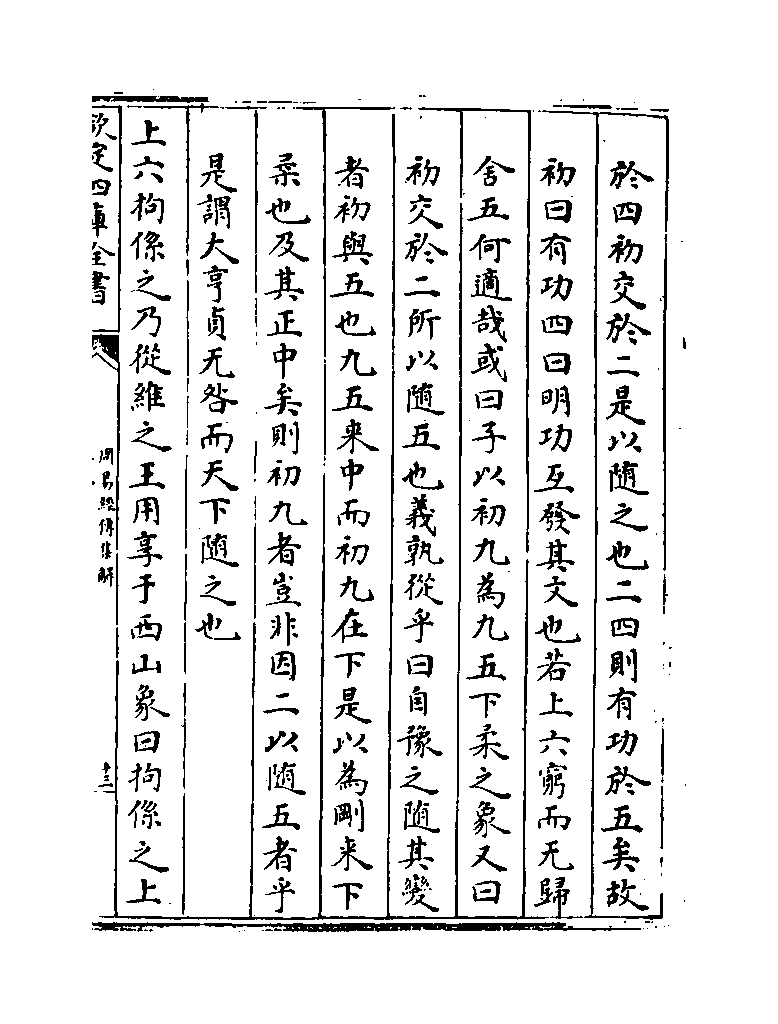 於四初交於二是以随之也二四則有功於五矣故
初曰有功四曰明功互發其文也若上六窮而无歸
舎五何適哉或曰子以初九為九五下柔之象又曰
初交於二所以随五也義孰從乎曰自豫之随其變
者初與五也九五来中而初九在下是以為剛来下
柔也及其正中矣則初九者豈非因二以随五者乎
是謂大亨貞无咎而天下随之也
上六拘係之乃從維之王用享于西山象曰拘係之上
欽定四庫全書
周易經傳集解
十三